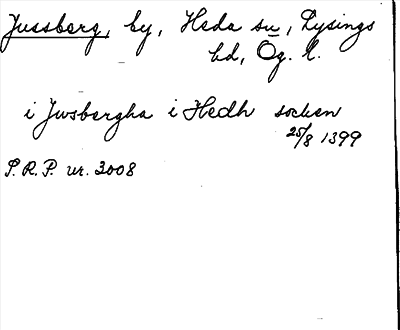 Jussberg, by, Heda sn, Lysings
hd, Ög. l.
i Jwsbergha i Hedh socken
25/8 1399
S. R. P. nr. 3008